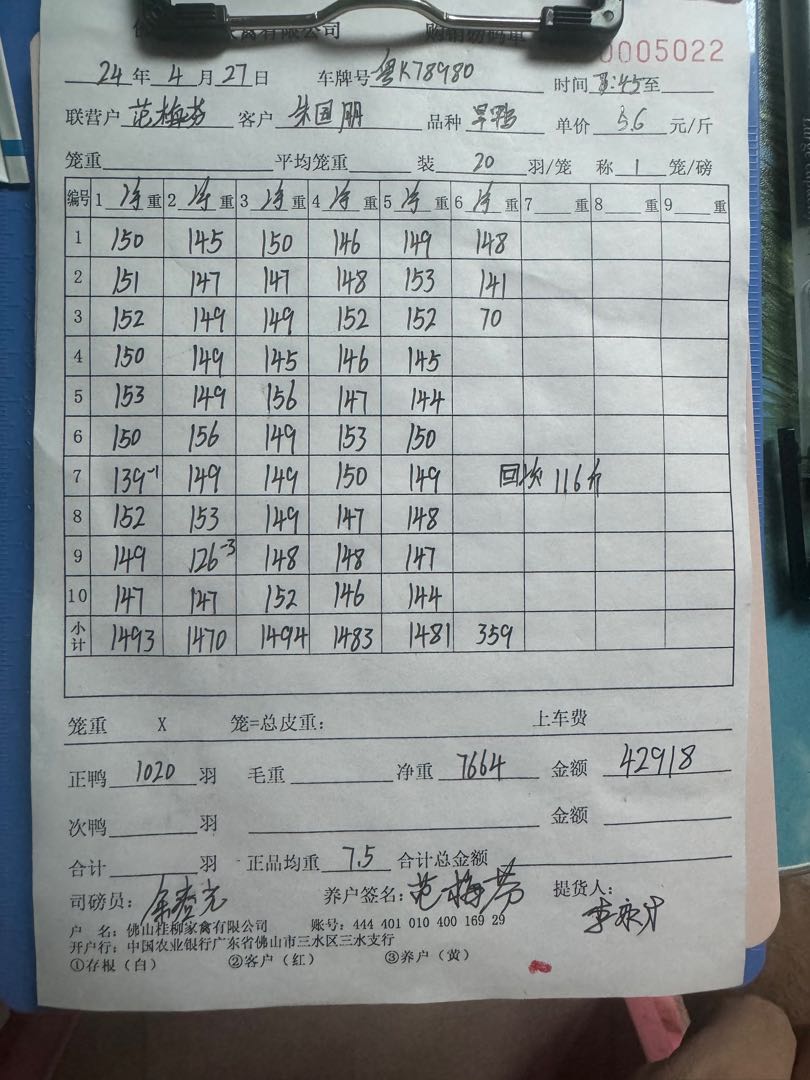 家禽有限公司 购销
0005022
24年4月27日 车牌号粤K78980 时间 :45至
联营户范梅芬 客户朱国朋 品种旱鸭 单价5.6元/斤
笼重 平均笼重 装20羽/笼 称1笼/磅
编号 1净重 2净重 3净重 4净重 5净重 6净重 7 重 8 重 9 重
1 150 145 150 146 149 148
2 151 147 147 148 153 141
3 152 149 149 152 152 70
4 150 149 145 146 145
5 153 149 156 147 144
6 150 156 149 153 150
7 139-1 149 149 150 149 回次116斤
8 152 153 149 147 148
9 149 126-3 148 148 147
10 147 147 152 146 144
小计 1493 1470 1494 1483 1481 359
笼重 X 笼=总皮重: 上车费
正鸭1020羽 毛重 净重7664 金额42918
次鸭 羽 金额
合计 羽 正品均重7.5 合计总金额
司磅员: 养户签名:范梅芬 提货人:
户 名:佛山桂柳家禽有限公司 账号:444 401 010 400 169 29
开户行:中国农业银行广东省佛山市三水区三水支行
①存根(白) ②客户(红) ③养户(黄)